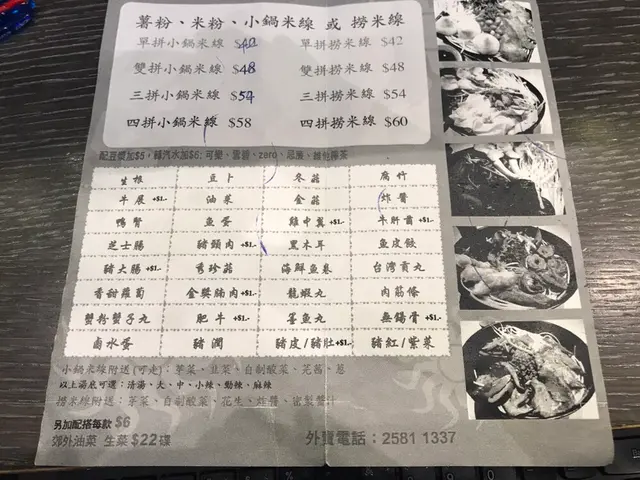 薯粉、米粉、小鍋米線 或 撈米線
單拼小鍋米線 $40 單拼撈米線 $42
雙拼小鍋米線 $48 雙拼撈米線 $48
三拼小鍋米線 $54 三拼撈米線 $54
四拼小鍋米線 $58 四拼撈米線 $60
配豆漿加$5，轉汽水加$6: 可樂、雪碧、zero、忌廉、維他檸茶
生根 豆卜 冬菇 腐竹
牛展+$1.- 油菜 金菇 炸醬
鴨腎 魚蛋 雞中翼+$1.- 牛肚+$1.-
芝士腸 豬頸肉+$1.- 黑木耳 魚皮餃
豬大腸+$1.- 秀珍菇 海鮮魚卷 台灣貢丸
香甜蘿蔔 金獎腩肉+$1.- 龍蝦丸 肉筋條
蟹粉蟹子丸 肥牛+$1.- 墨魚丸 無錫骨+$1.-
鹵水蛋 豬潤 豬皮/豬肚+$1.- 豬紅/紫菜
小鍋米線附送(可走): 芽菜、韭菜、自制酸菜、芫茜、葱
以上湯底可選: 清湯、大、中、小辣、勁辣、麻辣
撈米線附送: 芽菜、自制酸菜、花生、炸醬、密製醬汁
另加配搭每款 $6
郊外油菜 生菜 $22碟
外賣電話: 2581 1337